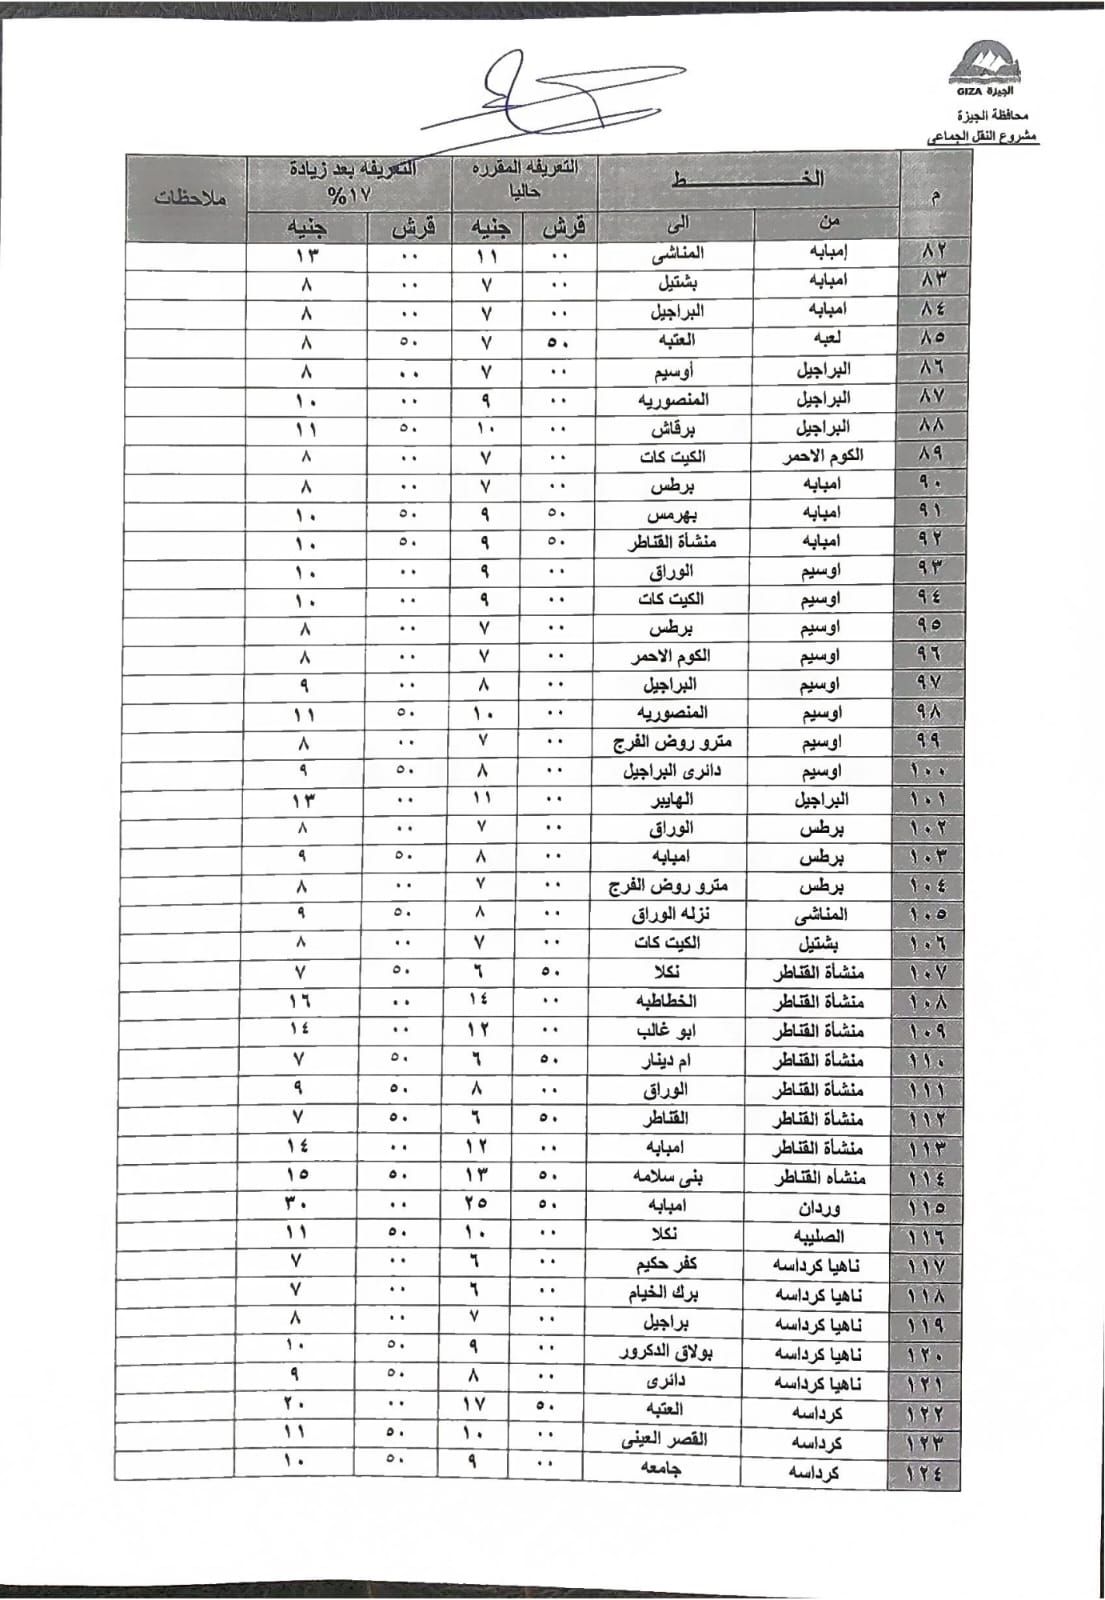 الجيزة GIZA
محافظة الجيزة
مشروع النقل الجماعى
م الخــــــط التعريفه المقرره حاليا التعريفه بعد زيادة ١٧% ملاحظات
من الى قرش جنيه قرش جنيه
٨٢ إمبابه المناشى ٠٠ ١١ ٠٠ ١٣
٨٣ امبابه بشتيل ٠٠ ٧ ٠٠ ٨
٨٤ امبابه البراجيل ٠٠ ٧ ٠٠ ٨
٨٥ لعبه العتبه ٥٠ ٧ ٥٠ ٨
٨٦ البراجيل أوسيم ٠٠ ٧ ٠٠ ٨
٨٧ البراجيل المنصوريه ٠٠ ٩ ٠٠ ١٠
٨٨ البراجيل برقاش ٠٠ ١٠ ٥٠ ١١
٨٩ الكوم الاحمر الكيت كات ٠٠ ٧ ٠٠ ٨
٩٠ امبابه برطس ٠٠ ٧ ٠٠ ٨
٩١ امبابه بهرمس ٥٠ ٩ ٥٠ ١٠
٩٢ امبابه منشأة القناطر ٥٠ ٩ ٥٠ ١٠
٩٣ اوسيم الوراق ٠٠ ٩ ٠٠ ١٠
٩٤ اوسيم الكيت كات ٠٠ ٩ ٠٠ ١٠
٩٥ اوسيم برطس ٠٠ ٧ ٠٠ ٨
٩٦ اوسيم الكوم الاحمر ٠٠ ٧ ٠٠ ٨
٩٧ اوسيم البراجيل ٠٠ ٨ ٠٠ ٩
٩٨ اوسيم المنصوريه ٠٠ ١٠ ٥٠ ١١
٩٩ اوسيم مترو روض الفرج ٠٠ ٧ ٠٠ ٨
١٠٠ اوسيم دائرى البراجيل ٠٠ ٨ ٥٠ ٩
١٠١ البراجيل الهايبر ٠٠ ١١ ٠٠ ١٣
١٠٢ برطس الوراق ٠٠ ٧ ٠٠ ٨
١٠٣ برطس امبابه ٠٠ ٨ ٥٠ ٩
١٠٤ برطس مترو روض الفرج ٠٠ ٧ ٠٠ ٨
١٠٥ المناشى نزله الوراق ٠٠ ٨ ٥٠ ٩
١٠٦ بشتيل الكيت كات ٠٠ ٧ ٠٠ ٨
١٠٧ منشأة القناطر نكلا ٥٠ ٦ ٥٠ ٧
١٠٨ منشأة القناطر الخطاطبه ٠٠ ١٤ ٠٠ ١٦
١٠٩ منشأة القناطر ابو غالب ٠٠ ١٢ ٠٠ ١٤
١١٠ منشأة القناطر ام دينار ٥٠ ٦ ٥٠ ٧
١١١ منشأة القناطر الوراق ٠٠ ٨ ٥٠ ٩
١١٢ منشأة القناطر القناطر ٥٠ ٦ ٥٠ ٧
١١٣ منشأة القناطر امبابه ٠٠ ١٢ ٠٠ ١٤
١١٤ منشاه القناطر بنى سلامه ٥٠ ١٣ ٥٠ ١٥
١١٥ وردان امبابه ٥٠ ٢٥ ٠٠ ٣٠
١١٦ الصليبه نكلا ٠٠ ١٠ ٥٠ ١١
١١٧ ناهيا كرداسه كفر حكيم ٠٠ ٦ ٠٠ ٧
١١٨ ناهيا كرداسه برك الخيام ٠٠ ٦ ٠٠ ٧
١١٩ ناهيا كرداسه براجيل ٠٠ ٧ ٠٠ ٨
١٢٠ ناهيا كرداسه بولاق الدكرور ٠٠ ٩ ٥٠ ١٠
١٢١ ناهيا كرداسه دائرى ٠٠ ٨ ٥٠ ٩
١٢٢ كرداسه العتبه ٥٠ ١٧ ٠٠ ٢٠
١٢٣ كرداسه القصر العينى ٠٠ ١٠ ٥٠ ١١
١٢٤ كرداسه جامعه ٠٠ ٩ ٥٠ ١٠